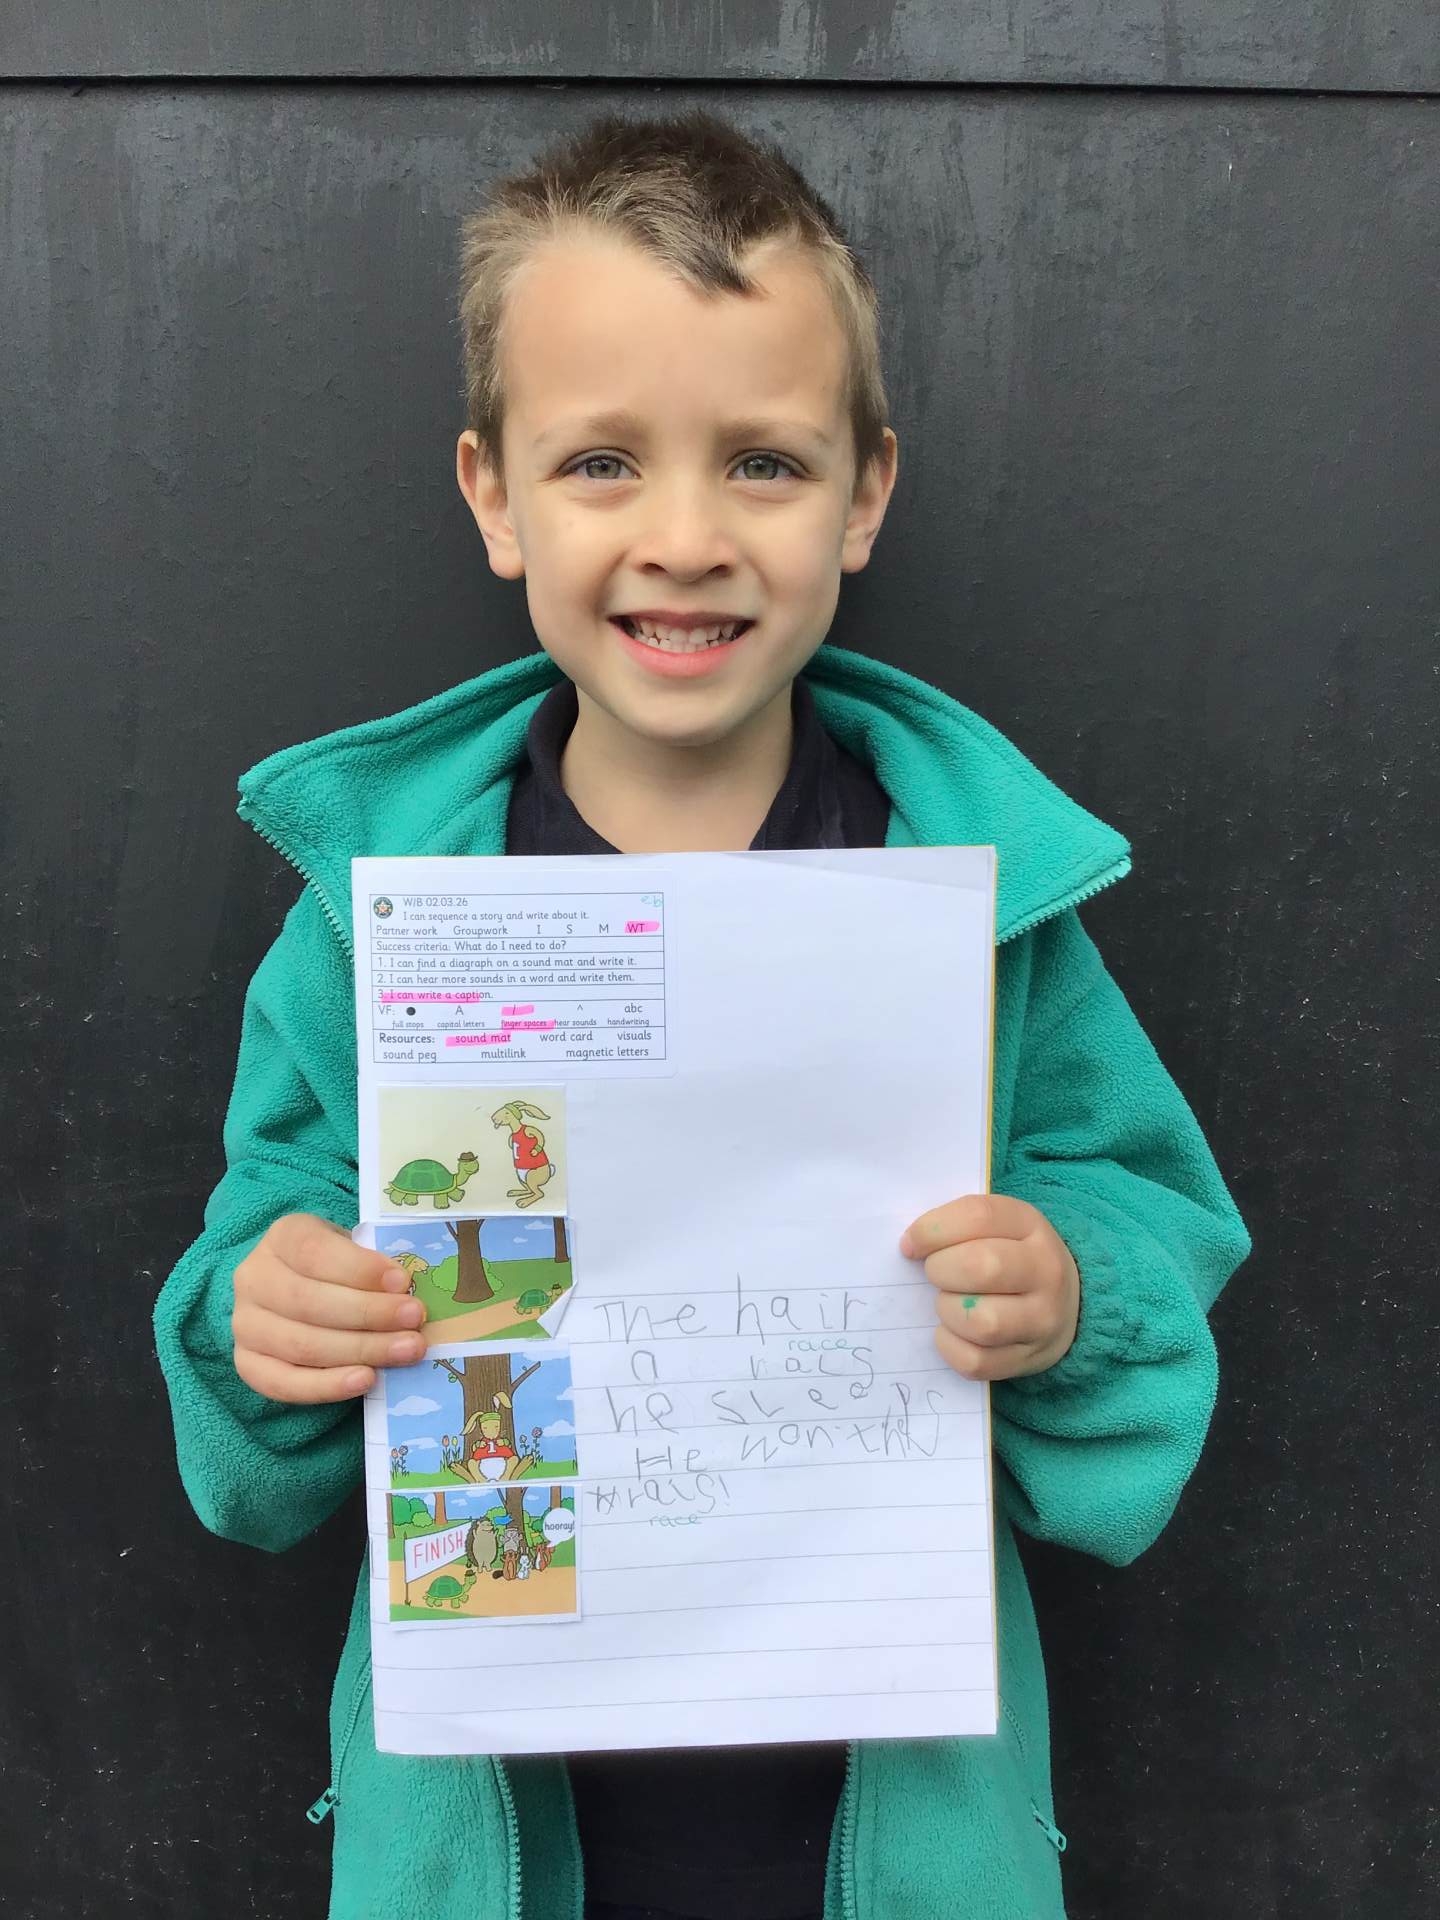 eb
W/B 02.03.26
I can sequence a story and write about it.
Partner work Groupwork I S M WT
Success criteria: What do I need to do?
1. I can find a diagraph on a sound mat and write it.
2. I can hear more sounds in a word and write them.
3. I can write a caption.
VF: ● A / ^ abc
full stops capital letters finger spaces hear sounds handwriting
Resources: sound mat word card visuals
sound peg multilink magnetic letters
1
The hair
race
n rais
he sleeps
He won the
rais!
race
1
hooray!
FINISH